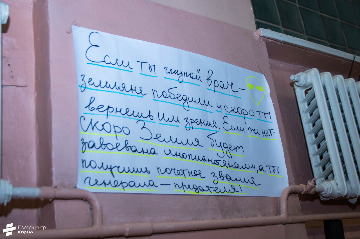 Если ты главный врач
земляне победили и скоро ты
вернешь им зрение. Если же нет
скоро Земля будет
завоевана инопланетянами, а ты
получишь почетное звание
генерала – предателя!